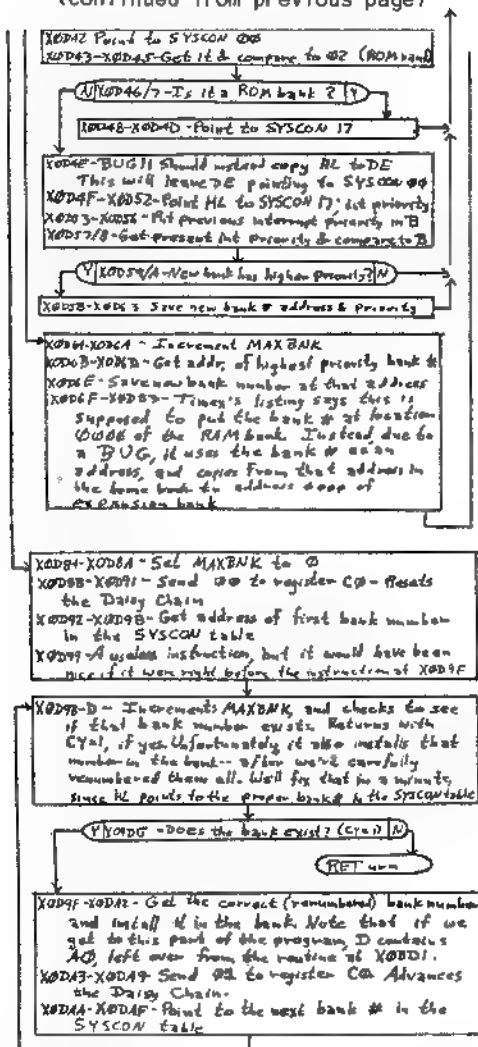 (continued from previous page)
XØD42 Point to SYSCON ØØ
XØD43-XØD45-Get it & compare to Ø2 (ROM bank)
N XØD46/7-Is it a ROM bank? Y
XØD48-XØD4D-Point to SYSCON 17
XØD4E-BUG!! Should instead copy HL to DE
This will leave DE pointing to SYSCON ØØ
XØD4F-XØD52-Point HL to SYSCON 17, int priority
XØD53-XØD56-Put previous interrupt priority in B
XØD57/8-Get present int priority & compare to B
Y XØD59/A-New bank has higher priority? N
XØD5B-XØD63 Save new bank # address & priority
XØD64-XØD6A-Increment MAXBNK
XØD6B-XØD6D-Get addr. of highest priority bank #
XØD6E-Save new bank number at that address
XØD6F-XØD83-Timex's listing says this is
supposed to put the bank # at location
of the RAM bank. Instead, due to
a BUG, it uses the bank # as an
address, and copies from that address in
the home bank to address of
expansion bank
XØD84-XØD8A-Set MAXBNK to Ø
XØD8B-XØD91-Send ØØ to register CØ-Resets
the Daisy Chain
XØD92-XØD98-Get address of first bank number
in the SYSCON table
XØD99-A useless instruction, but it would have been
nice if it were right before the instruction at XØD9F
XØD9B-D-Increments MAXBNK, and checks to see
if that bank number exists. Returns with
CY=1, if yes. Unfortunately it also installs that
number in the bank--after we've carefully
renumbered them all. We'll fix that in a minute,
since HL points to the proper bank # in the SYSCON table
Y -Does the bank exist? (CY=1) N
RETurn
XØD9F-XØDA2-Get the correct (renumbered) bank number
and install it in the bank. Note that if we
get to this part of the program, D contains
AØ, left over from the routine at XØBD1.
XØDA3-XØDA9-Send Ø1 to register CØ Advances
the Daisy Chain.
XØDAA-XØDAF-Point to the next bank # in the
SYSCON table